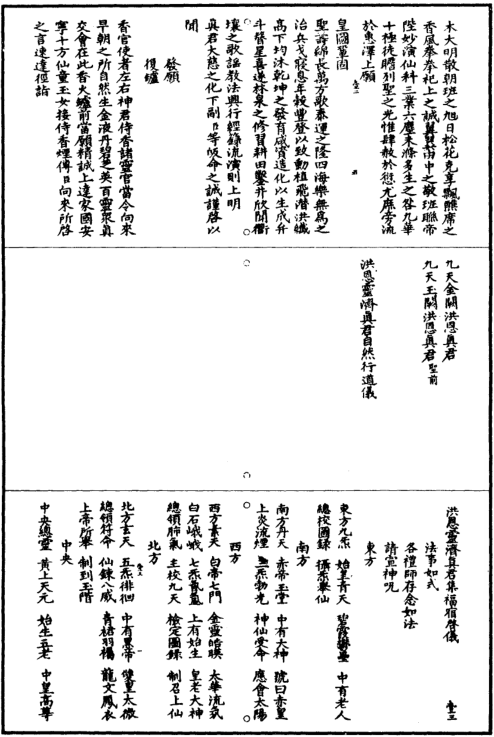 木大明敬朝班之旭日松花克享飄醮席之
香風拳拳祀上之誠翼翼甭中之敬班聯帝
陛妙演仙科三業六塵未滌多生之咎九華
十極徒瞻列聖之光惟肆赦於愆尤庶旁流
於惠澤上願
皇圖鞏固
聖壽綿長萬方歌泰運之隆四海樂無爲之
治兵戈寢息年穀豐登以致動植飛潛洪纖
高下均沐乾坤之發育咸資造化以生成升
斗聲星喜遂林泉之修習耕田鑿井欣聞衢
壤之歌謠教法興行經籙流演則上明
眞君大慈之化下副臣等皈命之誠謹啓以
聞
發願
復爐
香官使者左右神君侍香諸靈官當令向來
早朝之所自然生金液丹碧芝英百靈衆眞
交會在此香火爐前當願精誠上達家國安
寧十方仙童玉女接侍香煙傳臣向來所啓
之言速達徑詣
九天金闕洪恩眞君
九天玉闕洪恩眞君聖前
洪恩靈濟眞君自然行道儀
洪恩靈濟眞君集福宿啓儀
法事如式
各禮師存念如法
請宣神呪
東方
東方九炁 始皇青天 碧霞鬱壘 中有老人
總校圖籙 攝炁擧仙
南方
南方丹天 赤帝玉堂 中有大神 號曰赤皇
上炎流煙 三炁勃光 神仙受命 應會太陽
西方
西方素天 白帝七門 金靈皓暎 太華流氛
白石峨峨 七炁氤氳 上有始生 皇老大神
總領肺氣 主校九天 檢定圖籙 制召上仙
北方
北方玄天 五炁徘徊 中有黑帝 雙皇太微
總領符命 仙錄八威 青裙羽褐 龍文鳳衣
上帝所擧 制到玉階
中央
中央總靈 黃上天元 始生五老 中皇高尊